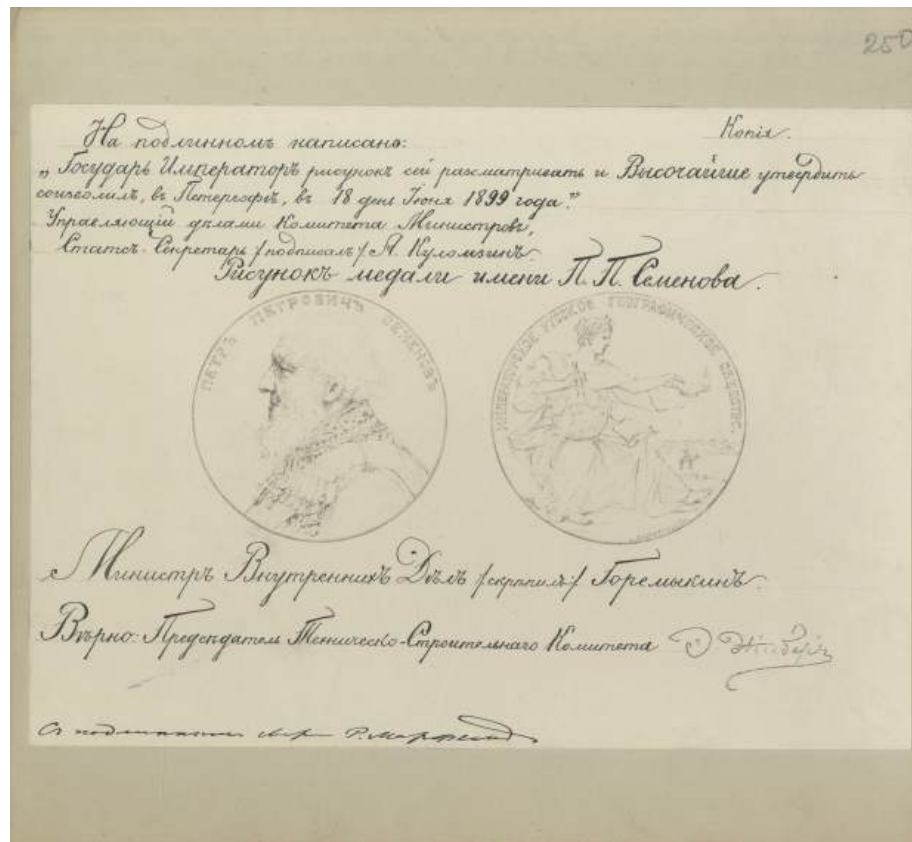 250
Копія.
На подлинномъ написано:
„Государь Императоръ рисунокъ сей разсматривать и Высочайше утвердить
соизволилъ, въ Петергофѣ, въ 18 день Іюня 1899 года."
Управляющій дѣлами Комитета Министровъ,
Статсъ-Секретарь /подписалъ/ А. Куломзинъ.
Рисунокъ медали имени П. П. Семенова.
ПЕТРЪ ПЕТРОВИЧЪ СЕМЕНОВЪ
ИМПЕРАТОРСКОЕ РУССКОЕ ГЕОГРАФИЧЕСКОЕ ОБЩЕСТВО.
Министръ Внутреннихъ Дѣлъ /скрѣпилъ/ Горемыкинъ.
Вѣрно: Предсѣдатель Техническо-Строительнаго Комитета
Съ подлиннымъ